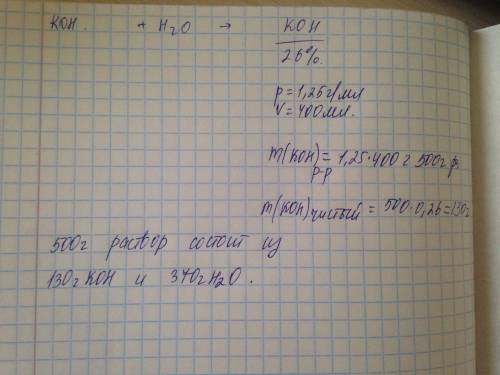 KOH. + H2O → KOH
26%.
p=1,25г/мл
V=400мл.
m(KOH)=1,25·400=500г
р-р
m(KOH)чистый=500·0,26=130г
500г раствор состоит из
130г KOH и 370г H2O.